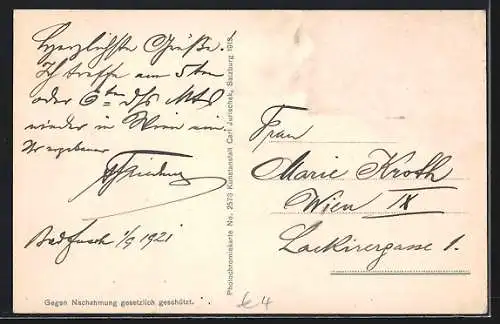 Herzlichste Grüße.
Ich treffe am 5ten
oder 6ten dfs Mts
wieder in Wien ein.
Ihr ergebener
Bad Fusch 1/9 1921
Photochromiekarte No. 2573 Kunstanstalt Carl Jurischek, Salzburg 1918.
Frau
Marie Kroth
Wien IX
Lackirergasse 1.
Gegen Nachahmung gesetzlich geschützt.
4